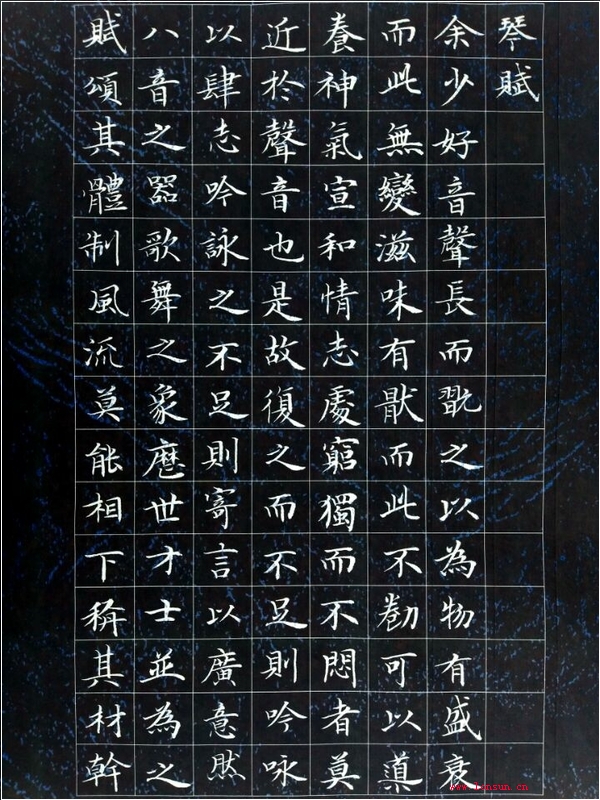 琴賦
余少好音聲長而翫之以為物有盛衰
而此無變滋味有猒而此不勌可以導
養神氣宣和情志處窮獨而不悶者莫
近於聲音也是故復之而不足則吟咏
以肆志吟詠之不足則寄言以廣意然
八音之器歌舞之象歷世才士並為之
賦頌其體制風流莫能相下稱其材幹